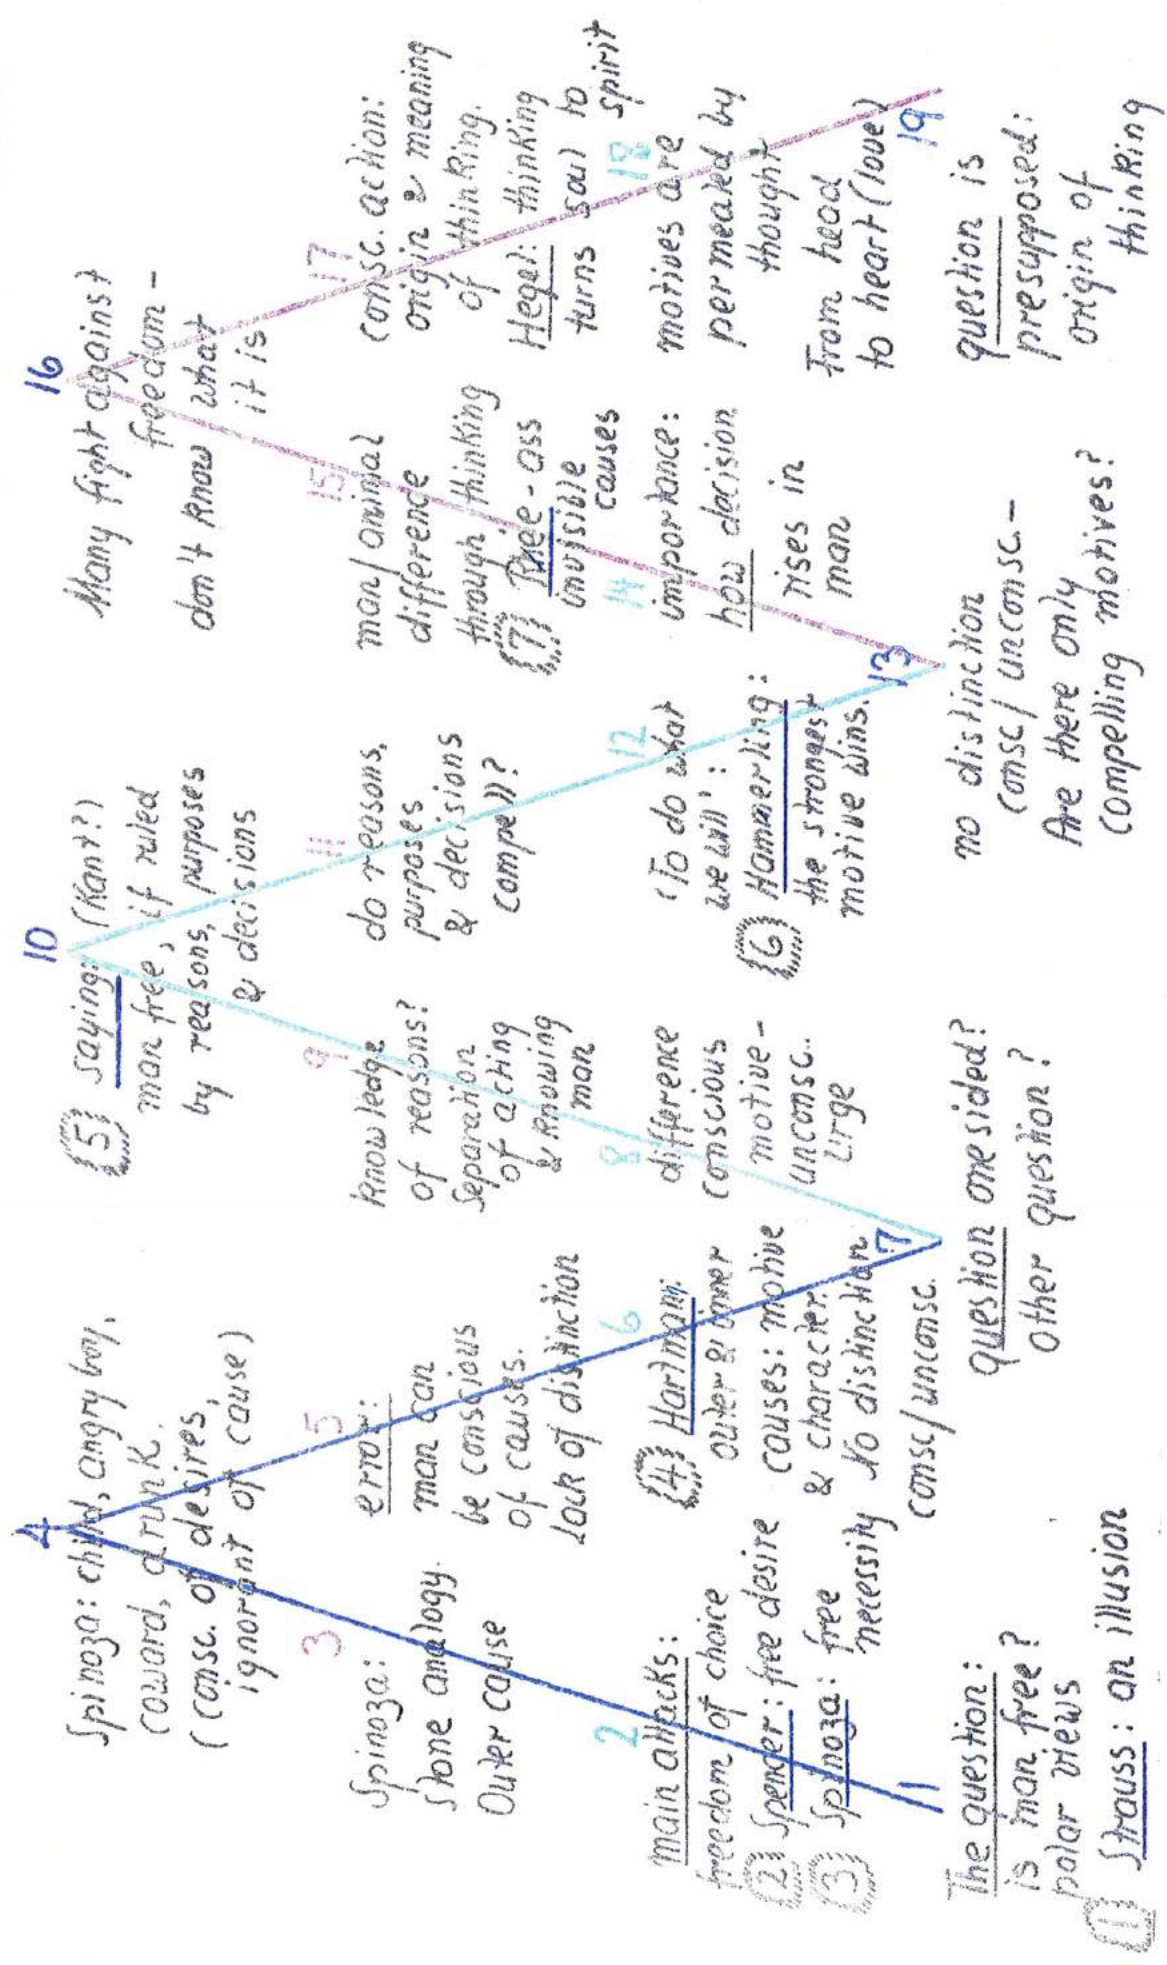 1
The question:
is man free?
polar views
{1} Strauss: an illusion
2
main attacks:
freedom of choice
{2} Spencer: free desire
{3} Spinoza: free
necessity
3
Spinoza:
Stone analogy.
Outer cause
4
Spinoza: child, angry boy,
coward, drunk.
(consc. of desires,
ignorant of cause)
5
error:
man can
be conscious
of causes.
Lack of distinction
6
{4} Hartmann:
outer & inner
causes: motive
& character.
No distinction
consc/unconsc.
7
question one sided?
Other question?
8
difference
conscious
motive-
unconsc..
urge
9
knowledge
of reasons?
Separation
of acting
& knowing
man
10
{5} saying: (Kant?)
man free, if ruled
by reasons, purposes
& decisions
11
do reasons,
purposes
& decisions
compell?
12
(To do what
we will':
{6} Hammerling:
the strongest
motive wins.
13
no distinction
consc/unconsc.-
Are there only
compelling motives?
14
importance:
how decision
rises in
man
15
man/animal
difference
through thinking
{7} Rhee-ass
invisible
causes
16
Many fight against
freedom-
don't know what
it is
17
consc. action:
origin & meaning
of thinking.
Hegel: thinking
turns soul to
spirit
18
motives are
permeated by
thought
From head
to heart (love)
19
question is
presupposed:
origin of
thinking